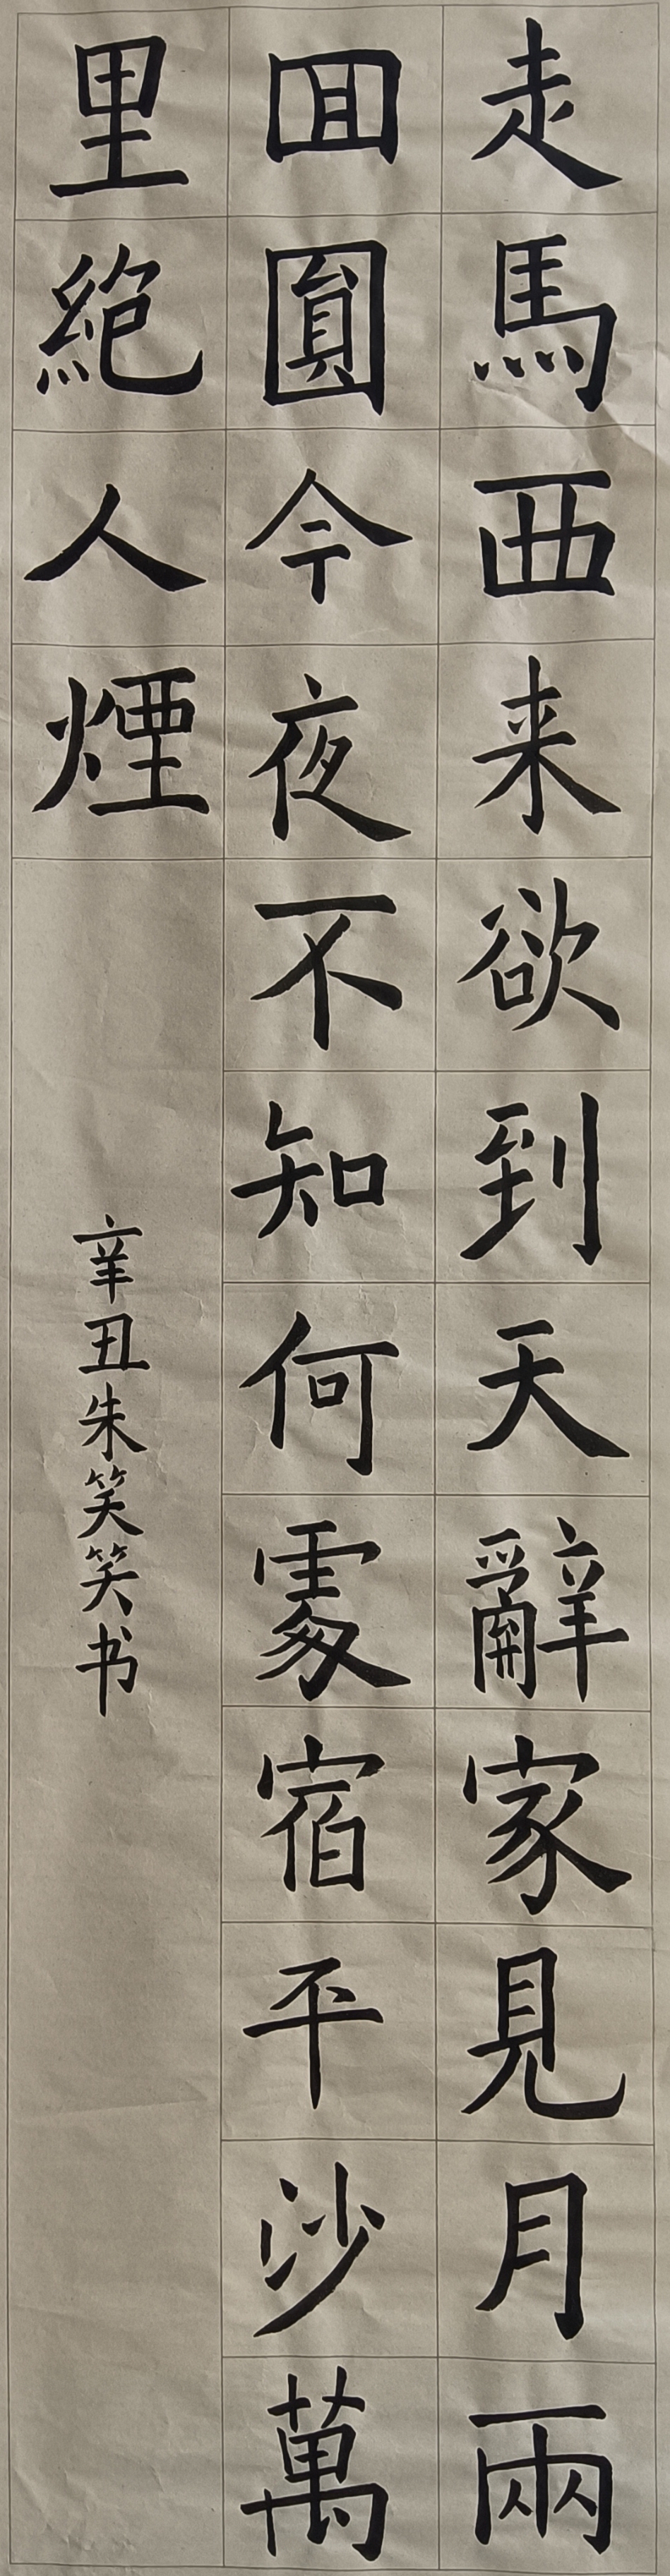 走馬西来欲到天辭家見月兩
囬圓今夜不知何處宿平沙萬
里絕人煙
辛丑朱笑笑书